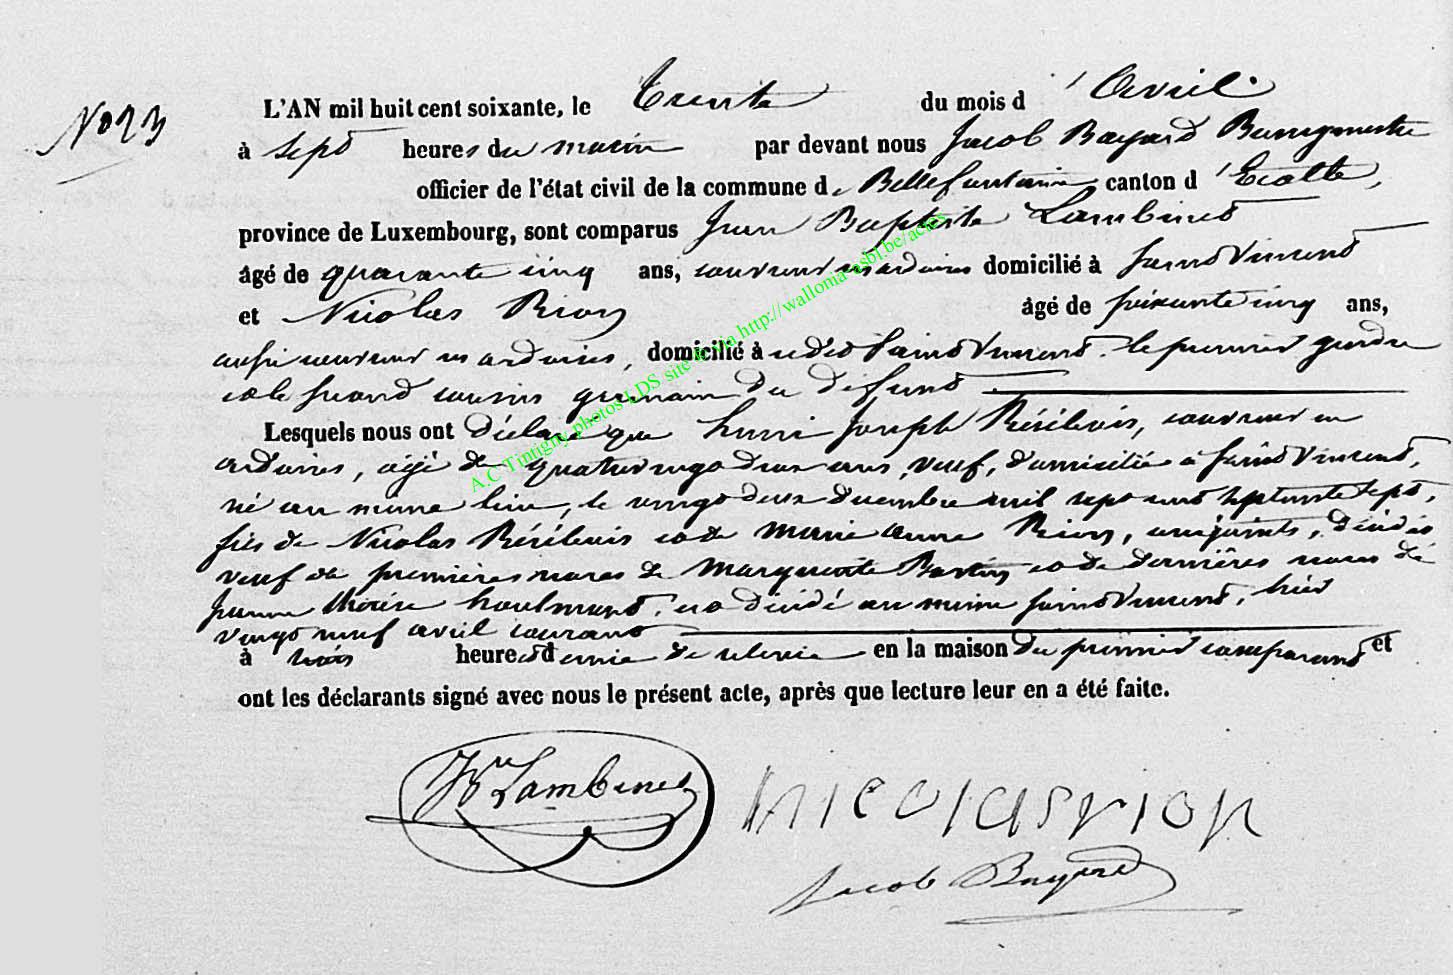 No 23
L'AN mil huit cent soixante, le Trente du mois d'Avril
à sept heures du matin par devant nous Jacob Bayard Bourgmestre
officier de l'état civil de la commune de Bellefontaine canton d'Etalle,
province de Luxembourg, sont comparus Jean Baptiste Lambinet
âgé de quarante cinq ans, couvreur en ardoises domicilié à Saint Vincent
et Nicolas Rion âgé de soixante cinq ans,
aussi couvreur en ardoises, domicilié à udit Saint Vincent. le premier gendre
et le second cousin germain du défunt
Lesquels nous ont déclaré que Henri Joseph Résibois, couvreur en
ardoises, âgé de quatre vingt deux ans, veuf, domicilié à Saint Vincent,
né au même lieu, le vingt deux décembre mil sept cent septante sept,
fils de Nicolas Résibois et de Marie Anne Rion, conjoints, décédés
veuf en premières noces de Marguerite et de dernières noces de
Jeanne Thérèse, est décédé au même Saint Vincent, hier
vingt neuf avril courant
à trois heures et demie de relevée en la maison du premier comparant et
ont les déclarants signé avec nous le présent acte, après que lecture leur en a été faite.
Lambinet nicolas rion
Jacob Bayard
A.C Tintigny photos LDS site via http://wallonia-asbl.be/actes